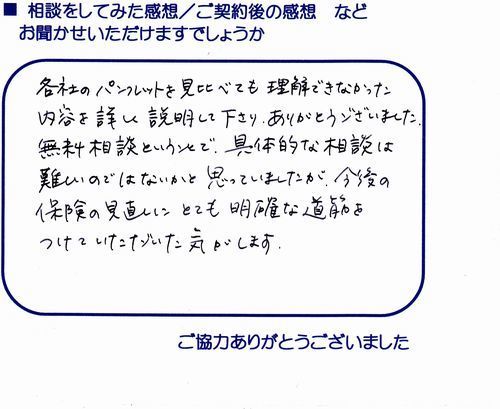 ■ 相談をしてみた感想／ご契約後の感想 など
お聞かせいただけますでしょうか
各社のパンフレットを見比べても理解できなかった
内容を詳しく説明して下さり、ありがとうございました。
無料相談ということで、具体的な相談は
難しいのではないかと思っていましたが、今後の
保険の見直しにとても明確な道筋を
つけていただいた気がします。
ご協力ありがとうございました